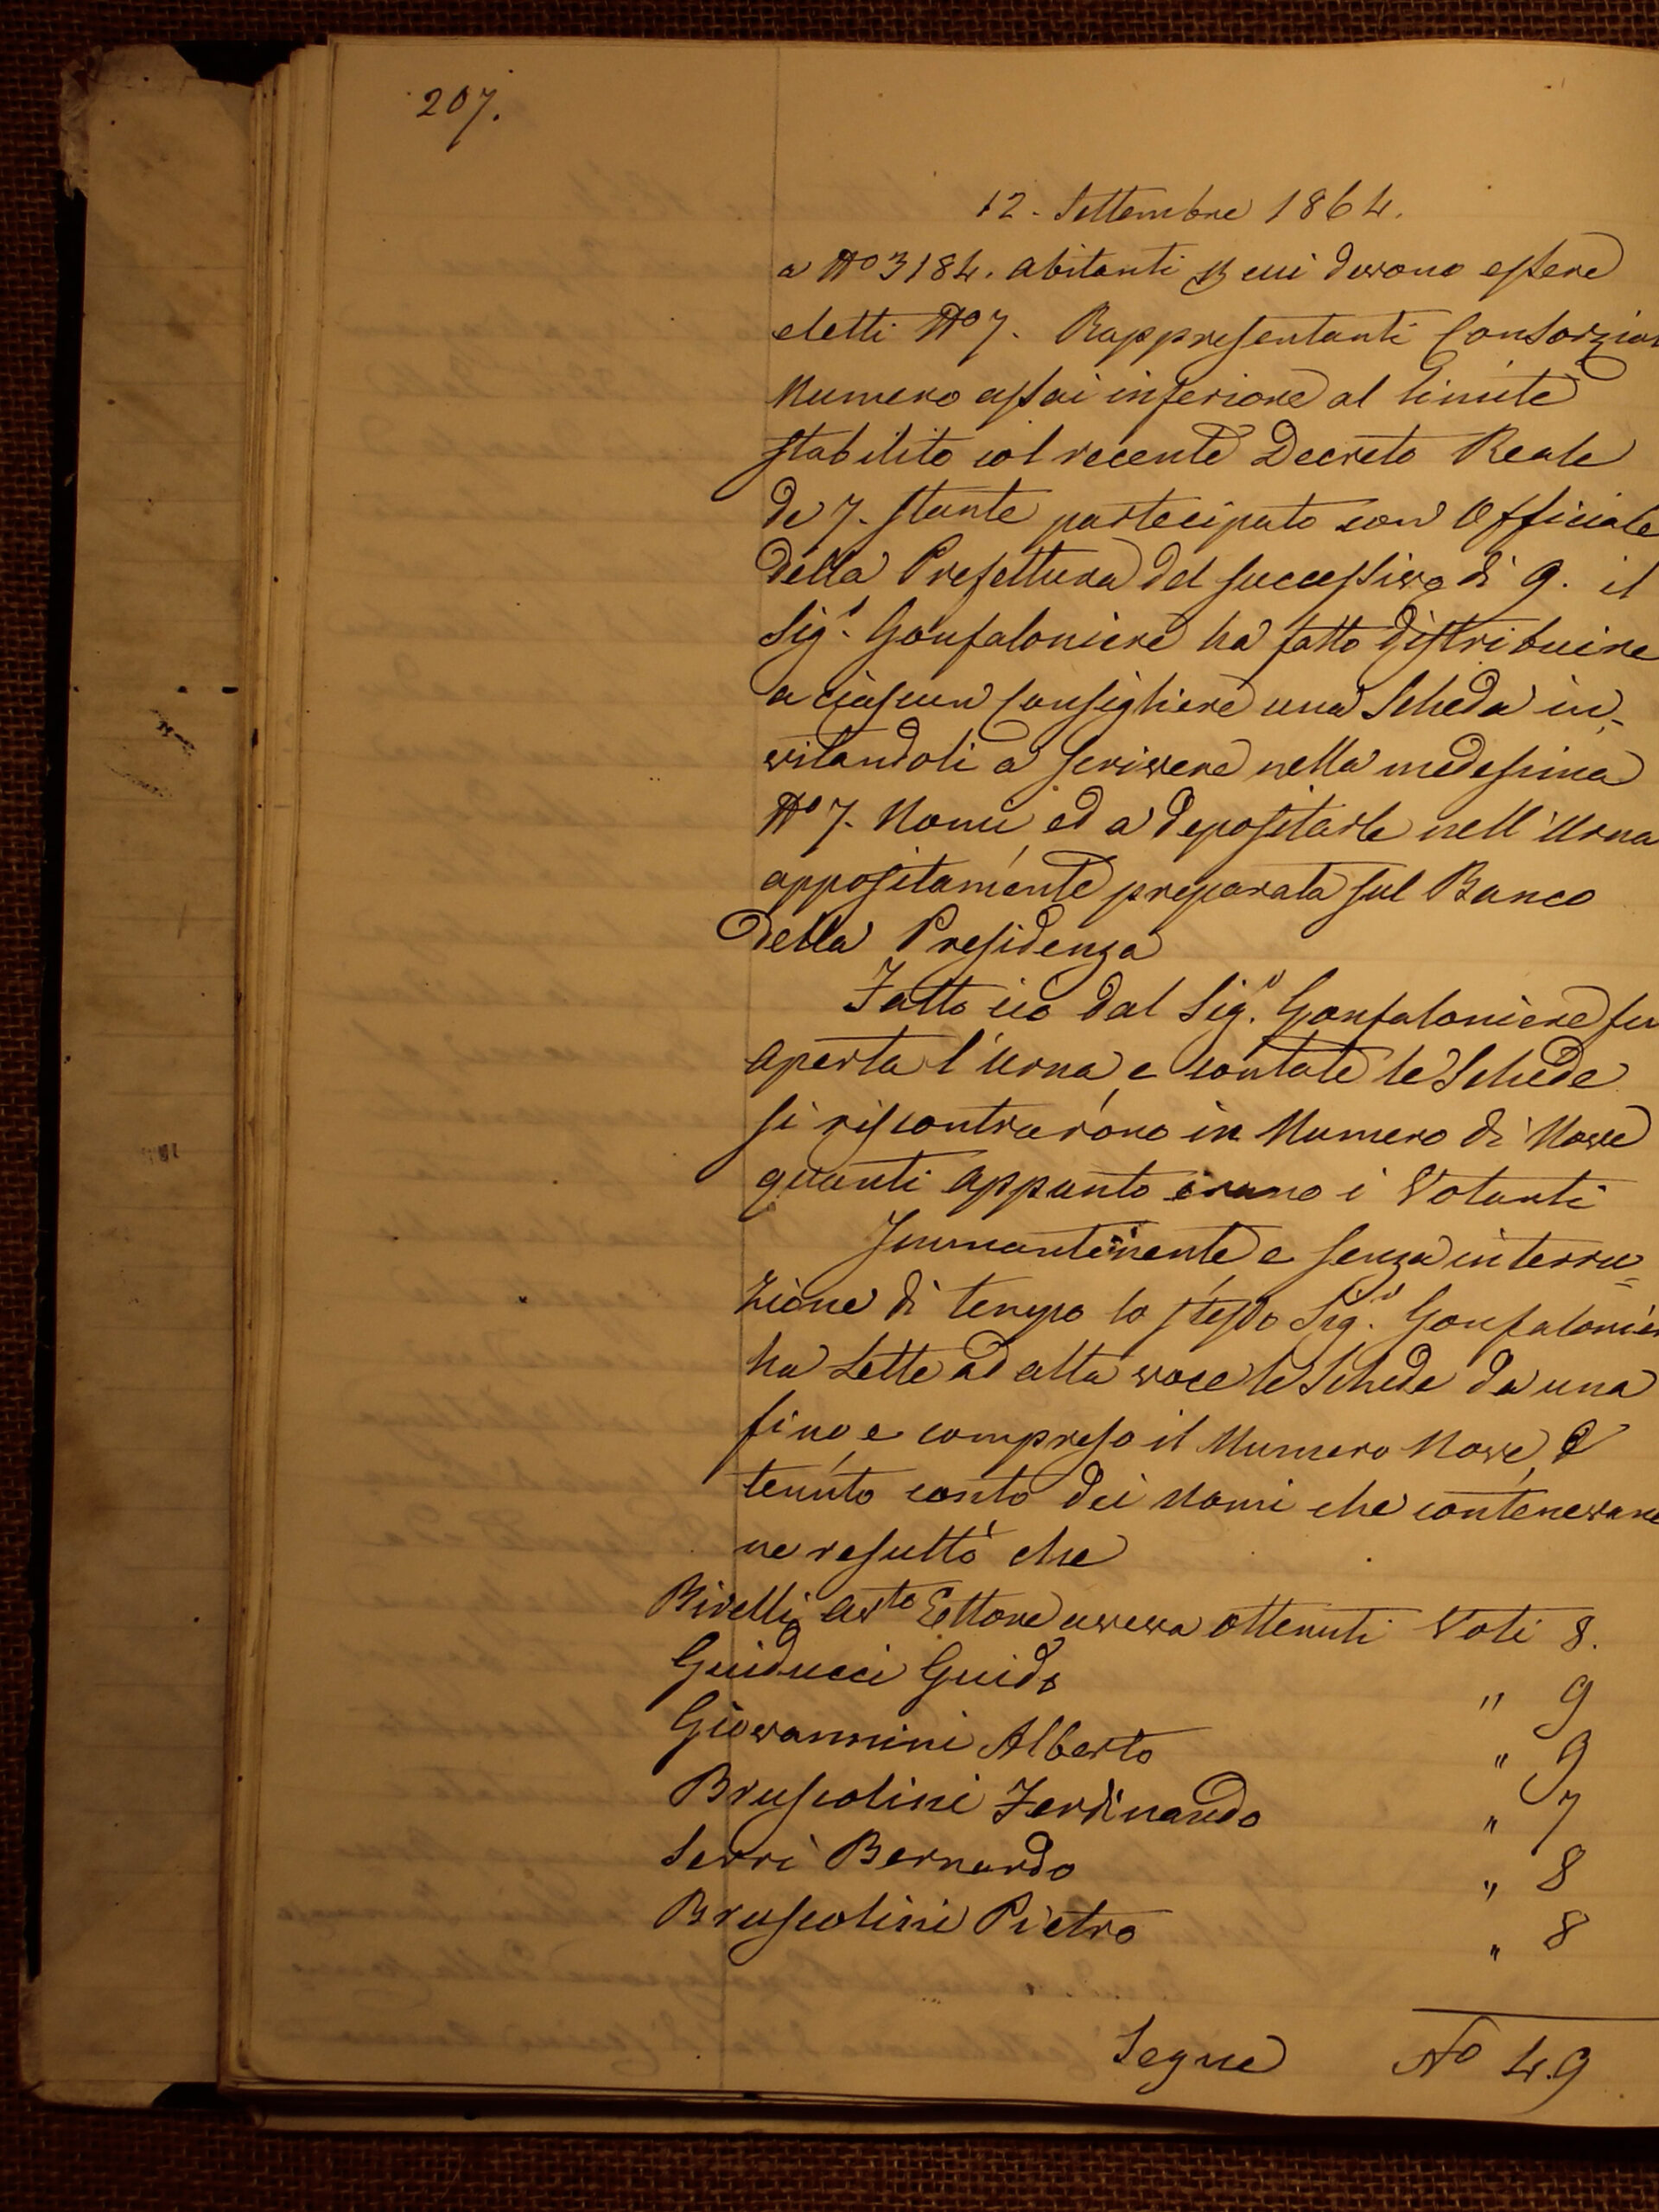 207.
12. Settembre 1864.
a No 3184. abitanti cui devono essere
eletti No 7. Rappresentanti
Numero assai inferiore al limite
stabilito col recente Decreto Reale
de 7. stante partecipato con Officiale
della Prefettura del successivo dì 9. il
Sigr. Gonfaloniere ha fatto distribuire
a ciascun Consigliere una Scheda in-
vitandoli a scrivere nella medesima
No 7. Nomi, ed a depositarle nell'Urna
appositamente preparata sul Banco
della Presidenza
Fatto ciò dal Sigr. Gonfaloniere fu
aperta l'Urna, e contate le Schede
si riscontrarono in Numero di Nove
quanti appunto erano i Votanti
Immantinente e senza interru=
zione di tempo lo stesso Sigr.
ha Lette ad alta voce le Schede da una
fino, e compreso il Numero Nove, e
tenuto conto dei Nomi che contenevano
ne resultò che
Birelli Avto Ettore aveva ottenuti Voti 8.
Guiducci Guido " 9
Giovannini Alberto " 9
Bruscolini Ferdinando " 7
Serri Bernardo " 8
Bruscolini Pietro " 8
Segue No 49